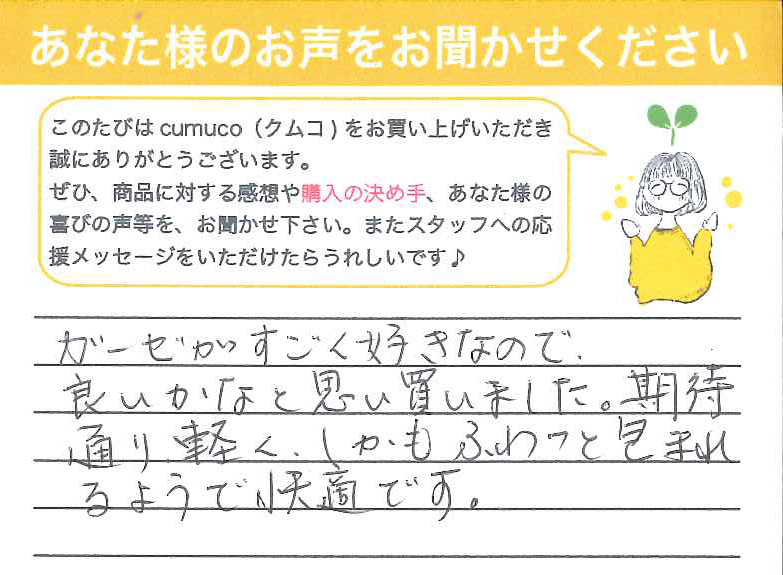 あなた様のお声をお聞かせください
このたびはcumuco（クムコ）をお買い上げいただき
誠にありがとうございます。
ぜひ、商品に対する感想や購入の決め手、あなた様の
喜びの声等を、お聞かせ下さい。またスタッフへの応
援メッセージをいただけたらうれしいです♪
ガーゼがすごく好きなので、
良いかなと思い買いました。期待
通り軽く、しかもふわっと包まれ
るようで快適です。